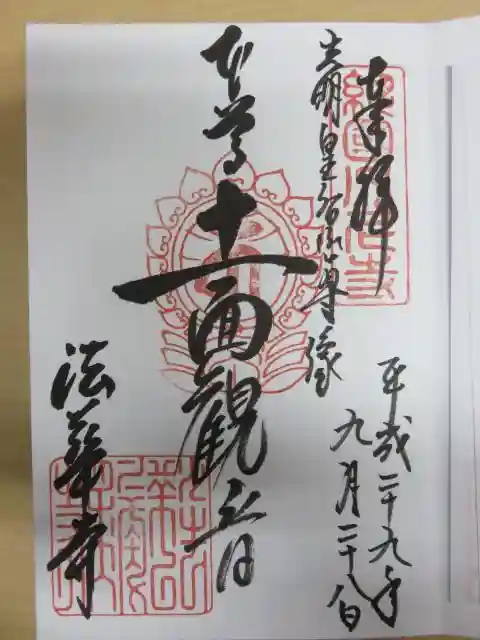 奉拝
光明皇后御尊像
平成二十九年
九月二十八日
本尊十一面観音
法華寺
総国法華寺